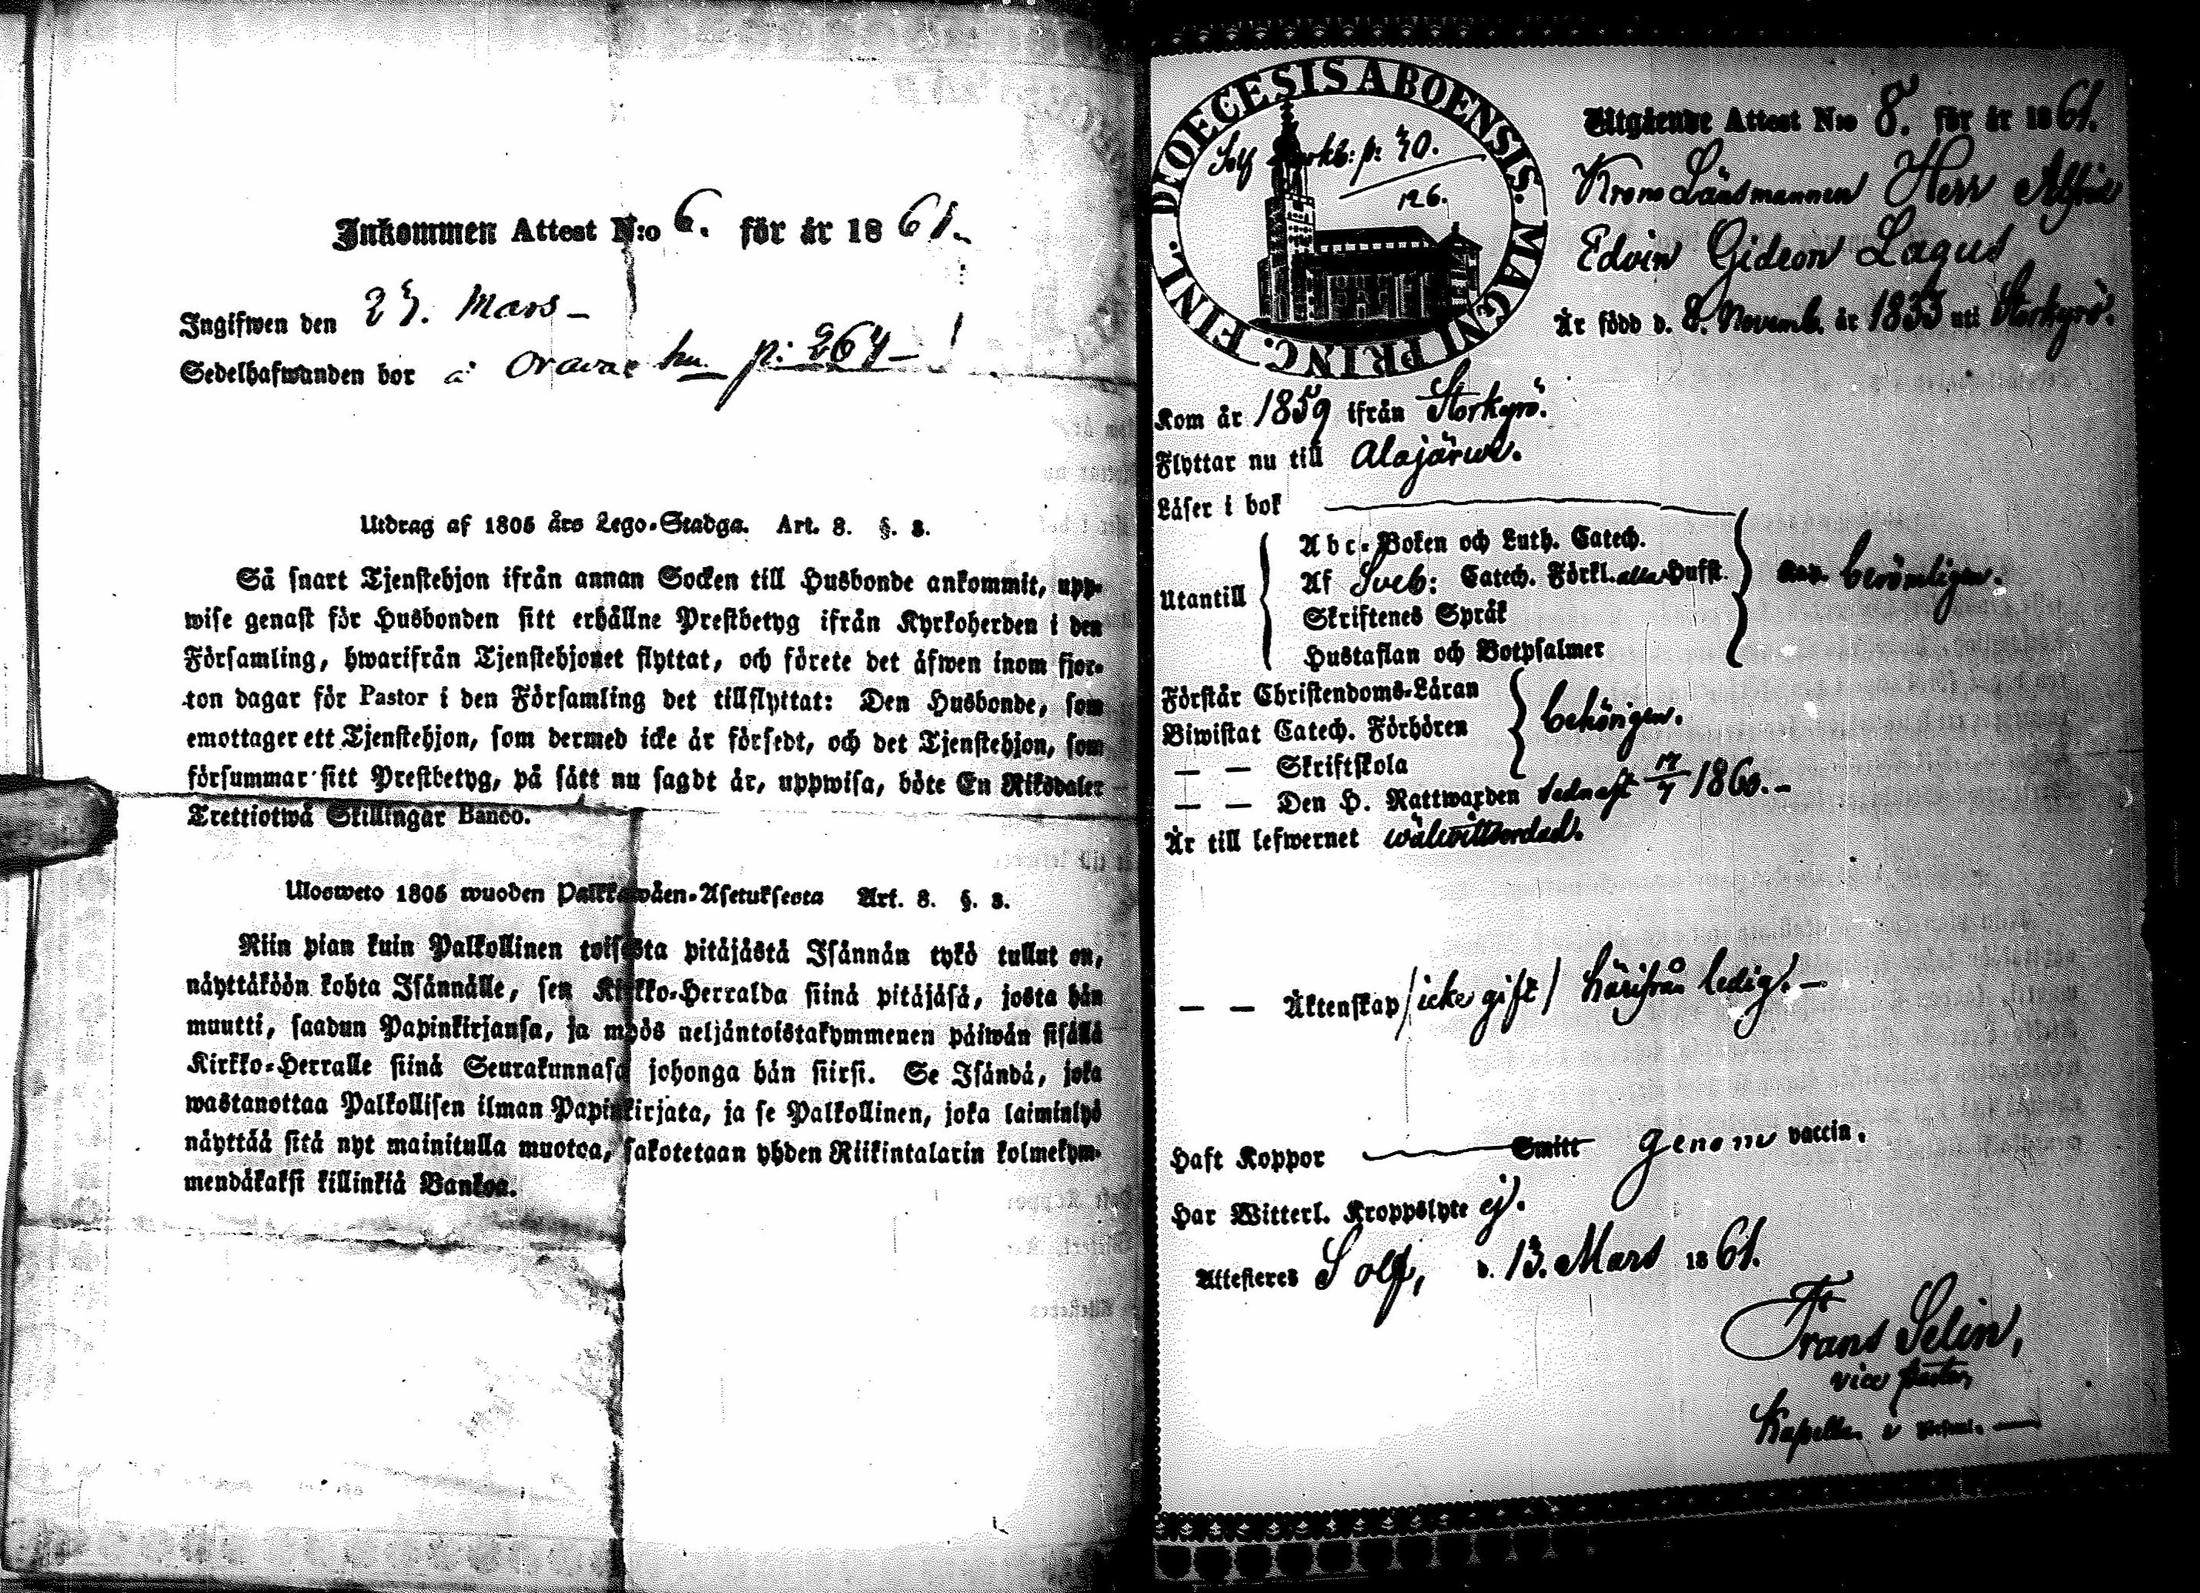 Inkommen Attest N:o 6. för år 1861.
Ingifwen den 27. Mars –
Sedelhafwanden bor å p: 264 –
Utdrag af 1805 års Lego-Stadga. Art. 8. §. 3.
Så snart Tjenstehjon ifrån annan Socken till Husbonde ankommit, upp-
wise genast för Husbonden sitt erhållne Prestbetyg ifrån Kyrkoherden i den
Församling, hwarifrån Tjenstehjonet flyttat, och förete det äfwen inom fjor-
ton dagar för Pastor i den Församling det tillflyttat: Den Husbonde, som
emottager ett Tjenstehjon, som dermed icke är försedt, och det Tjenstehjon, som
försummar sitt Prestbetyg, på sätt nu sagdt är, uppwisa, böte En Riksdaler
Trettiotwå Skillingar Banco.
Ulosweto 1805 wuoden Palkkawäen-Asetuksesta Art. 8. §. 3.
Niin pian kuin Palkollinen toisesta pitäjästä Isännän tykö tullut on,
näyttäköön kohta Isännälle, sen Kirkko-Herralda siinä pitäjäsä, josta hän
muutti, saadun Papinkirjansa, ja myös neljäntoistakymmenen päiwän sisällä
Kirkko-Herralle siinä Seurakunnasa johonga hän siirsi. Se Isändä, joka
wastanottaa Palkollisen ilman Papinkirjata, ja se Palkollinen, joka laiminlyö
näyttää sitä nyt mainitulla muotoa, sakotetaan yhden Riikintalarin kolmekym-
mendäkaksi killinkiä Bankoa.
DIOECESIS ABOENSIS. MAGNI PRINC. FINL.
Solf p: 40.
126.
Utgående Attest N:o 8. för år 1861.
Krono Länsmannen Herr
Edvin Gideon Lagus
Är född d. 8. Novemb. år 1833 uti Storkyrö.
Kom år 1859 ifrån Storkyrö.
Flyttar nu till Alajärwi.
Läser i bok
Utantill
Abc-Boken och Luth. Catech.
Af Sveb: Catech. Förkl. alla Hufst.
Skriftenes Språk
Hustaflan och Botpsalmer
berömligen.
Förstår Christendoms-Läran
Biwistat Catech. Förhören
— — Skriftskola
behörigen.
— — Den H. Nattwarden sednast 1860. –
Är till lefwernet wälwittordad.
— — Äktenskap /icke gift/ härifrån ledig. –
Haft Koppor Smitt genom vaccin.
Har Witterl. Kroppslyte ej.
Attesteres Solf, d. 13. Mars 1861.
Frans Selin,
vice pastor,